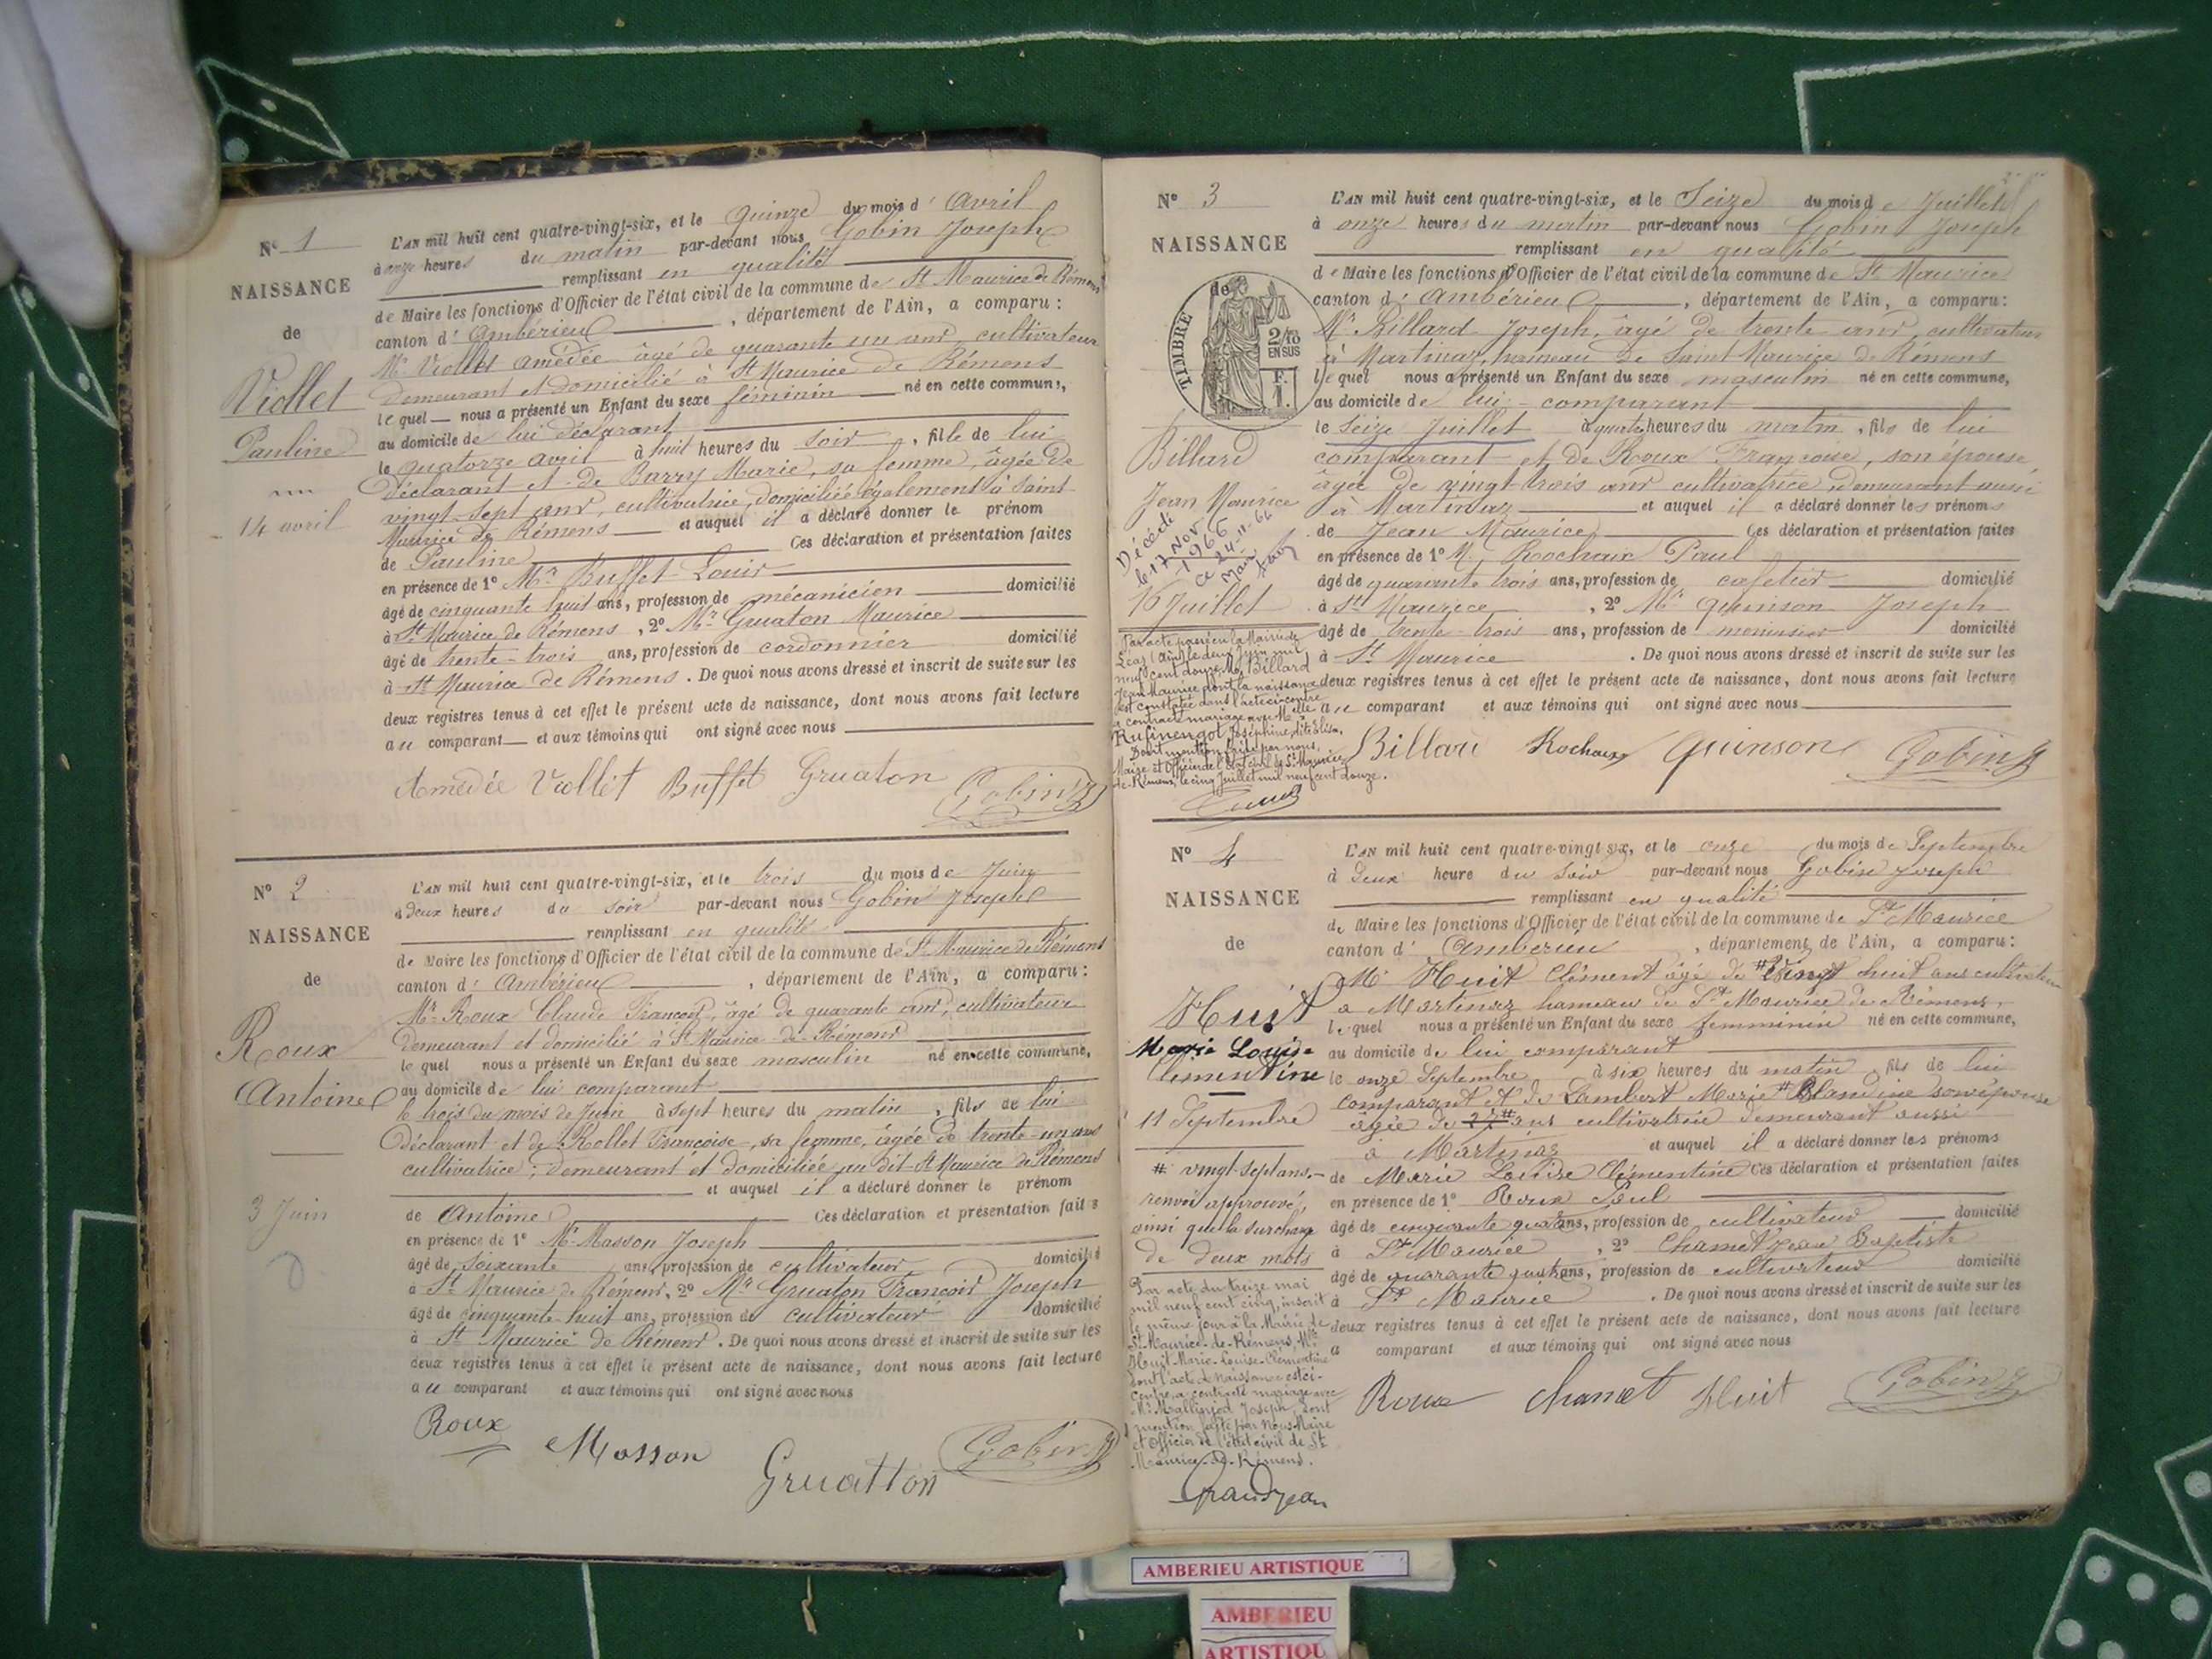 N° 1
NAISSANCE
de
Viollet
Pauline
14 avril
L'AN mil huit cent quatre-vingt-six, et le quinze du mois d'avril
à onze heures du matin par-devant nous Gobin Joseph
remplissant en qualité
de Maire les fonctions d'Officier de l'état civil de la commune de St Maurice de Rémens
canton d'Ambérieu, département de l'Ain, a comparu:
Mr Viollet amédée âgé de quarante un ans, cultivateur
demeurant et domicilié à St Maurice de Rémens
lequel nous a présenté un Enfant du sexe féminin né en cette commune,
au domicile de lui déclarant
le quatorze avril à huit heures du soir, fille de lui
déclarant et de Barry Marie, sa femme, âgée de
vingt-sept ans, cultivatrice, domiciliée également à Saint
Maurice de Rémens et auquel il a déclaré donner le prénom
de Pauline Ces déclaration et présentation faites
en présence de 1° Mr Buffet Louis
âgé de cinquante huit ans, profession de mécanicien domicilié
à St Maurice de Rémens, 2° Mr Gruaton Maurice
âgé de trente-trois ans, profession de cordonnier domicilié
à St Maurice de Rémens. De quoi nous avons dressé et inscrit de suite sur les
deux registres tenus à cet effet le présent acte de naissance, dont nous avons fait lecture
au comparant et aux témoins qui ont signé avec nous
Amédée Viollet Buffet Gruaton Gobin
N° 2
NAISSANCE
de
Roux
Antoine
3 Juin
L'AN mil huit cent quatre-vingt-six, et le trois du mois de Juin
à deux heures du soir par-devant nous Gobin Joseph
remplissant en qualité
de Maire les fonctions d'Officier de l'état civil de la commune de St Maurice de Rémens
canton d'Ambérieu, département de l'Ain, a comparu:
Mr Roux Claude François, âgé de quarante ans, cultivateur
demeurant et domicilié à St Maurice de Rémens
lequel nous a présenté un Enfant du sexe masculin né en cette commune,
au domicile de lui comparant
le trois du mois de Juin à sept heures du matin, fils de lui
déclarant et de Rollet Françoise, sa femme, âgée de trente-un ans
cultivatrice, demeurant et domiciliée au dit St Maurice de Rémens
et auquel il a déclaré donner le prénom
de Antoine Ces déclaration et présentation faites
en présence de 1° Mr Masson Joseph
âgé de soixante ans, profession de cultivateur domicilié
à St Maurice de Rémens, 2° Mr Gruaton François Joseph
âgé de cinquante-huit ans, profession de cultivateur domicilié
à St Maurice de Rémens. De quoi nous avons dressé et inscrit de suite sur les
deux registres tenus à cet effet le présent acte de naissance, dont nous avons fait lecture
au comparant et aux témoins qui ont signé avec nous
Roux Masson Gruatton Gobin
N° 3
NAISSANCE
de
TIMBRE
2/10
EN SUS
F.
1.
Billard
Jean Maurice
Décédé
le 17 Nov
1966
ce 24-11-66
16 Juillet
Par acte passé en la Mairie de
le deux Juin mil
neuf cent douze, Mr Billard
Jean Maurice dont la naissance
est constatée dans l'acte ci-contre
a contracté mariage avec Melle
Rufinengot Joséphine, dite Elisa,
Dont mention faite par nous,
Maire et Officier de l'état civil de St Maurice
de Rémens, le cinq Juillet mil neuf cent douze.
L'AN mil huit cent quatre-vingt-six, et le Seize du mois de Juillet
à onze heures du matin par-devant nous Gobin Joseph
remplissant en qualité
de Maire les fonctions d'Officier de l'état civil de la commune de St Maurice
canton d'Ambérieu, département de l'Ain, a comparu:
Mr Billard Joseph, âgé de trente ans, cultivateur
à Martinaz, hameau de Saint Maurice de Rémens
lequel nous a présenté un Enfant du sexe masculin né en cette commune,
au domicile de lui comparant
le seize Juillet à quatre heures du matin, fils de lui
comparant et de Roux Françoise, son épouse
âgée de vingt-trois ans cultivatrice, demeurant aussi
à Martinaz et auquel il a déclaré donner les prénoms
de Jean Maurice Ces déclaration et présentation faites
en présence de 1° M. Rochaix Paul
âgé de quarante trois ans, profession de cafetier domicilié
à St Maurice, 2° Mr Quinson Joseph
âgé de trente-trois ans, profession de menuisier domicilié
à St Maurice. De quoi nous avons dressé et inscrit de suite sur les
deux registres tenus à cet effet le présent acte de naissance, dont nous avons fait lecture
au comparant et aux témoins qui ont signé avec nous
Billard Rochaix Quinson Gobin
N° 4
NAISSANCE
de
Huit
Marie Louise
Clementine
11 Septembre
# vingt sept ans.
renvoi approuvé,
ainsi que la surcharge
de deux mots
Par acte du treize mai
mil neuf cent cinq, inscrit
le même jour à la Mairie de
St-Maurice-de-Rémens, Melle
Huit Marie-Louise-Clémentine
dont l'acte de naissance est ci-
contre, a contracté mariage avec
Mr Joseph, dont
mention faite par nous Maire
et Officier de l'état civil de St
Maurice-de-Rémens.
Grandjean
L'AN mil huit cent quatre-vingt-six, et le onze du mois de Septembre
à deux heure du soir par-devant nous Gobin Joseph
remplissant en qualité
de Maire les fonctions d'Officier de l'état civil de la commune de St Maurice
canton d'Amberieu, département de l'Ain, a comparu:
Mr Huit Clément âgé de # vingt huit ans cultivateur
a Martinaz hameau de St Maurice de Rémens
lequel nous a présenté un Enfant du sexe femminin né en cette commune,
au domicile de lui comparant
le onze Septembre à six heures du matin, fils de lui
comparant et de Lambert Marie # Blandine son épouse
agée de 27 # ans cultivatrice demeurant aussi
à Martinaz et auquel il a déclaré donner les prénoms
de Marie Louise Clémentine Ces déclaration et présentation faites
en présence de 1° Roux Paul
âgé de cinquante quatre ans, profession de cultivateur domicilié
à St Maurice, 2° Chamet Jean Baptiste
âgé de quarante huit ans, profession de cultivateur domicilié
à St Maurice. De quoi nous avons dressé et inscrit de suite sur les
deux registres tenus à cet effet le présent acte de naissance, dont nous avons fait lecture
a comparant et aux témoins qui ont signé avec nous
Roux Chamet Huit Gobin
AMBERIEU ARTISTIQUE
AMBERIEU
ARTISTIQU